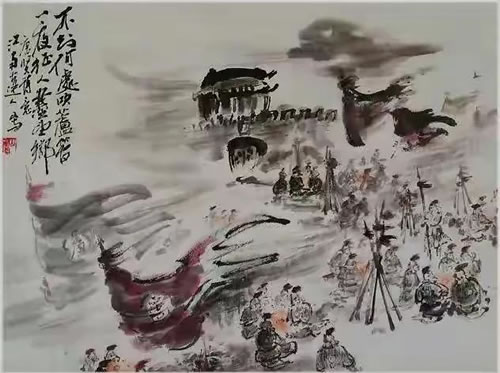 不知何處吹蘆管
一夜征人盡望鄉
江南
人寫